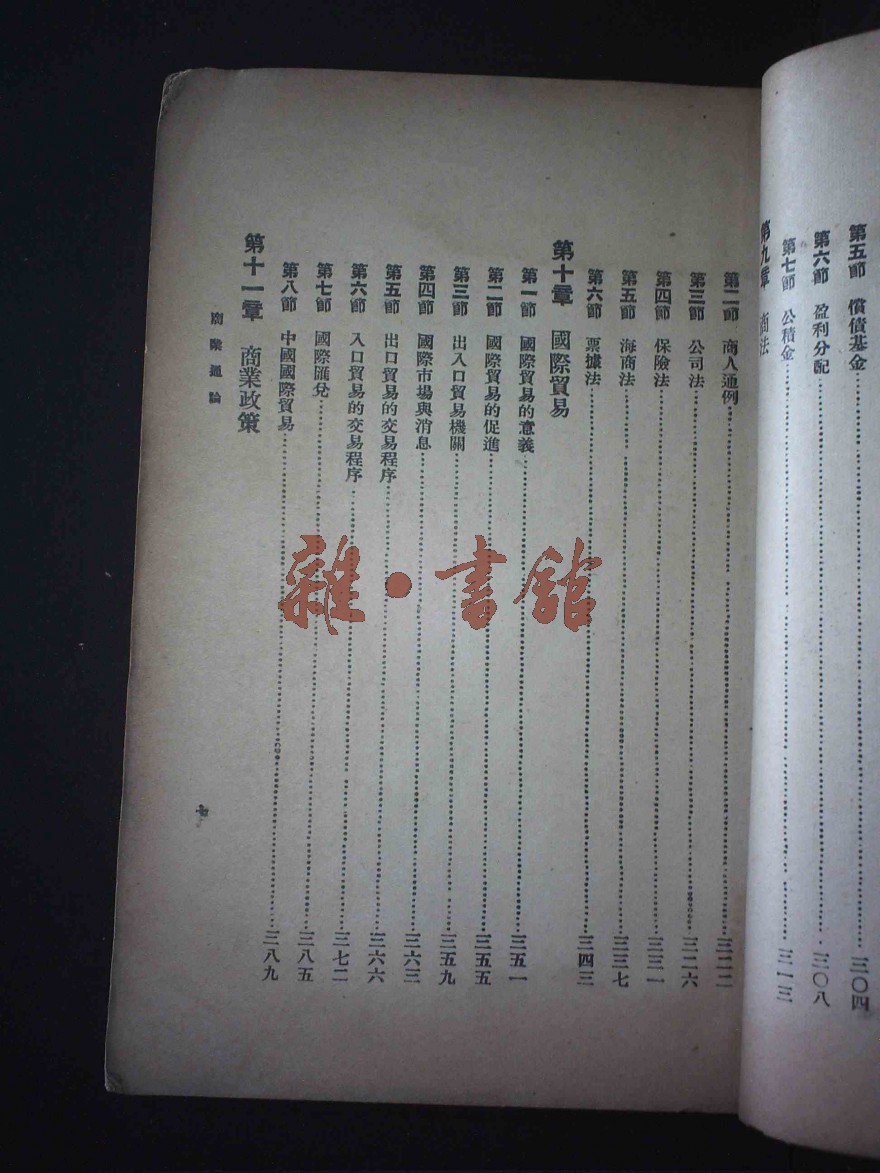 第五節 償債基金……三〇四
第六節 盈利分配……三〇八
第七節 公積金……三一三
第九章 商法
第二節 商人通例……三二二
第三節 公司法……三二六
第四節 保險法……三三一
第五節 海商法……三三七
第六節 票據法……三四三
第十章 國際貿易
第一節 國際貿易的意義……三五一
第二節 國際貿易的促進……三五五
第三節 出入口貿易機關……三五九
第四節 國際市場與消息……三六三
第五節 出口貿易的交易程序……三六六
第六節 入口貿易的交易程序……三七二
第七節 國際匯兌……三八五
第八節 中國國際貿易……三八九
第十一章 商業政策
商業通論
雜·書館